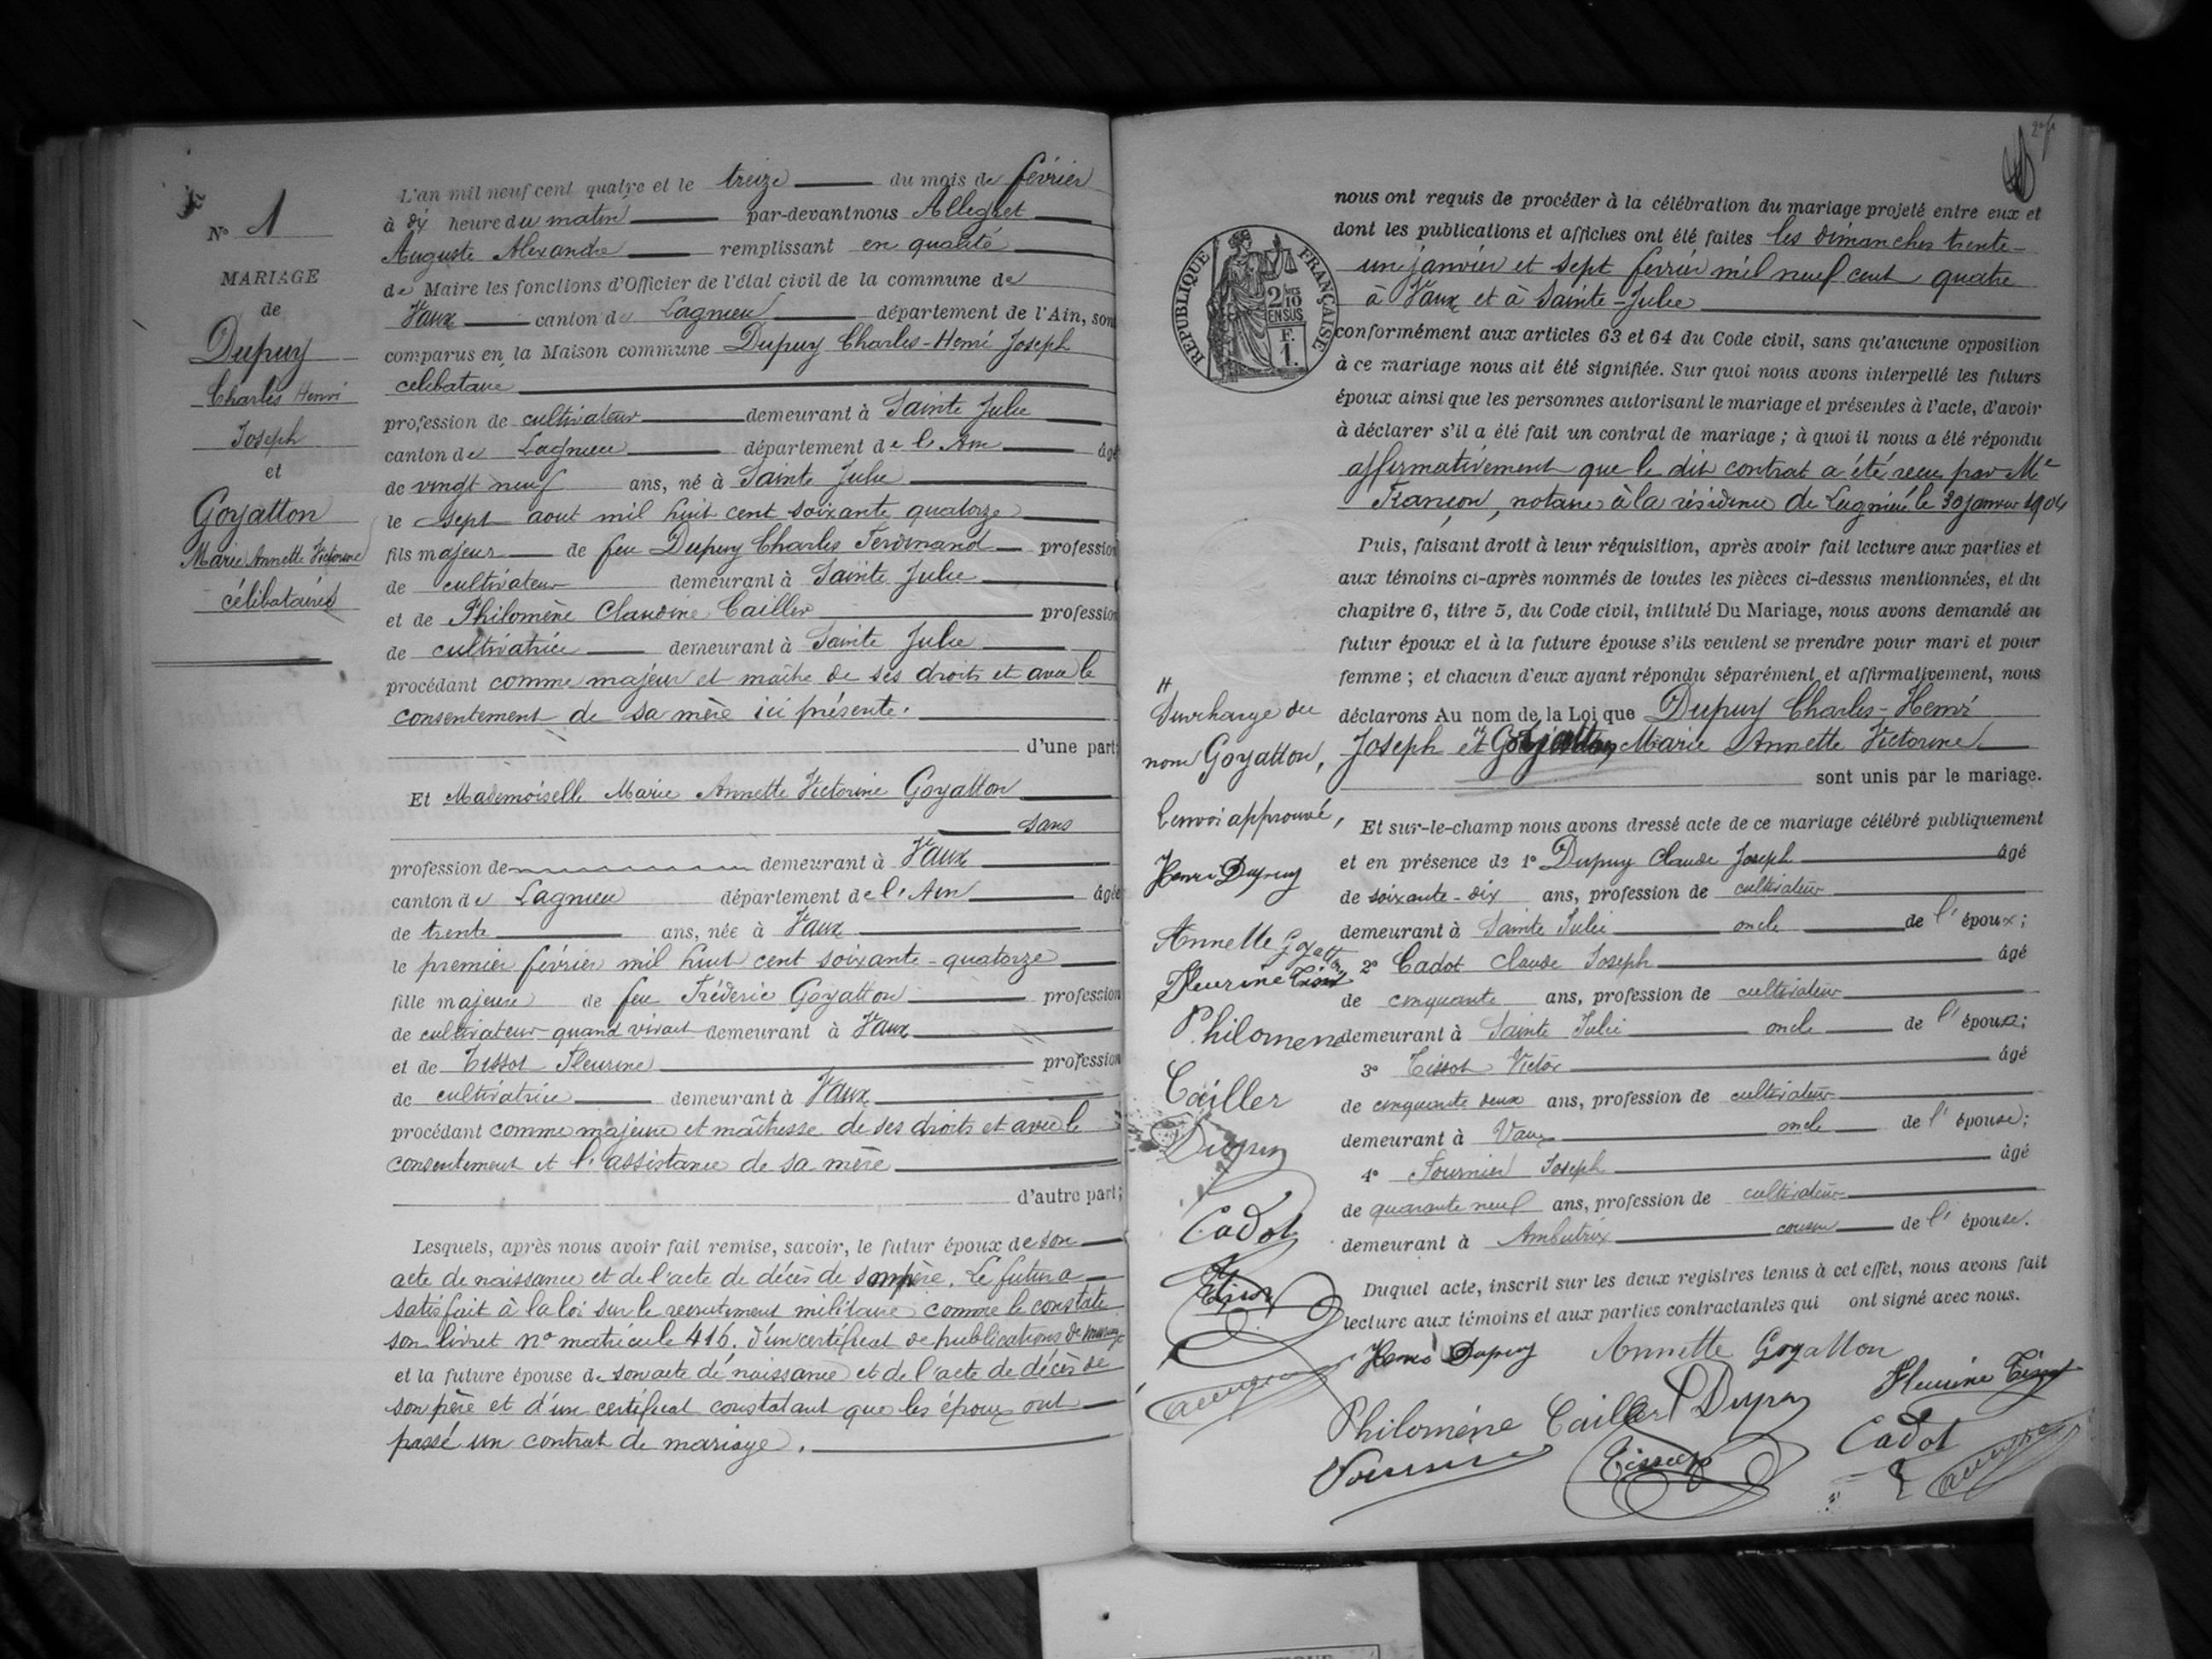 N° 1
MARIAGE
de
Dupuy
Charles Henri
Joseph
et
Goyatton
Marie Annette Victorine
célibataires
L'an mil neuf cent quatre et le treize du mois de février
à dix heure du matin par-devant nous Allegret
Auguste Alexandre remplissant en qualité
de Maire les fonctions d'Officier de l'état civil de la commune de
Vaux canton de Lagnieu département de l'Ain, son
comparus en la Maison commune Dupuy Charles-Henri Joseph
célibataire
profession de cultivateur demeurant à Sainte Julie
canton de Lagnieu département de l'Ain âgé
de vingt neuf ans, né à Sainte Julie
le sept aout mil huit cent soixante quatorze
fils majeur de feu Dupuy Charles Ferdinand profession
de cultivateur demeurant à Sainte Julie
et de Philomène Claudine Cailler profession
de cultivatrice demeurant à Sainte Julie
procédant comme majeur et maître de ses droits et avec le
consentement de sa mère ici présente.
d'une part;
Et Mademoiselle Marie Annette Victorine Goyatton
sans
profession de demeurant à Vaux
canton de Lagnieu département de l'Ain âgée
de trente ans, née à Vaux
le premier février mil huit cent soixante-quatorze
fille majeure de feu Fréderic Goyatton profession
de cultivateur quand vivait demeurant à Vaux
et de Tissot Fleurine profession
de cultivatrice demeurant à Vaux
procédant comme majeure et maîtresse de ses droits et avec le
consentement et l'assistance de sa mère
d'autre part;
Lesquels, après nous avoir fait remise, savoir, le futur époux de son
acte de naissance et de l'acte de décès de son père. Le futur a
satisfait à la loi sur le recrutement militaire comme le constate
son livret n° matricule 416. d'un certificat de publications de mariage
et la future épouse de son acte de naissance et de l'acte de décès de
son père et d'un certificat constatant que les époux ont
passé un contrat de mariage.
RÉPUBLIQUE FRANÇAISE
2/10
EN SUS
F.
1.
nous ont requis de procéder à la célébration du mariage projeté entre eux et
dont les publications et affiches ont été faites les dimanches trente-
un janvier et sept février mil neuf cent quatre
à Vaux et à Sainte-Julie
conformément aux articles 63 et 64 du Code civil, sans qu'aucune opposition
à ce mariage nous ait été signifiée. Sur quoi nous avons interpellé les futurs
époux ainsi que les personnes autorisant le mariage et présentes à l'acte, d'avoir
à déclarer s'il a été fait un contrat de mariage ; à quoi il nous a été répondu
affirmativement que le dit contrat a été reçu par Me
Françon, notaire à la résidence de Lagnieu le 30 janvier 1904
Puis, faisant droit à leur réquisition, après avoir fait lecture aux parties et
aux témoins ci-après nommés de toutes les pièces ci-dessus mentionnées, et du
chapitre 6, titre 5, du Code civil, intitulé Du Mariage, nous avons demandé au
futur époux et à la future épouse s'ils veulent se prendre pour mari et pour
femme ; et chacun d'eux ayant répondu séparément et affirmativement, nous
déclarons Au nom de la Loi que Dupuy Charles-Henri
Joseph et Goyatton Marie Annette Victorine
sont unis par le mariage.
Et sur-le-champ nous avons dressé acte de ce mariage célébré publiquement
et en présence de 1° Dupuy Claude Joseph âgé
de soixante-dix ans, profession de cultivateur
demeurant à Sainte Julie oncle de l'époux;
2° Cadot Claude Joseph âgé
de cinquante ans, profession de cultivateur
demeurant à Sainte Julie oncle de l'épouse;
3° Tissot Victor âgé
de cinquante deux ans, profession de cultivateur
demeurant à Vaux oncle de l'épouse;
4° Fournier Joseph âgé
de quarante neuf ans, profession de cultivateur
demeurant à Ambutrix cousin de l'épouse.
Duquel acte, inscrit sur les deux registres tenus à cet effet, nous avons fait
lecture aux témoins et aux parties contractantes qui ont signé avec nous.
Henri Dupuy Annette Goyatton
Fleurine Tissot
Philomène Cailler Dupuy
Cadot
Fournier Tissot
Surcharge du
nom Goyatton,
l'envoi approuvé,
Henri Dupuy
Annette Goyatton
Fleurine Tissot
Philomene
Cailler
Dupuy
Cadot